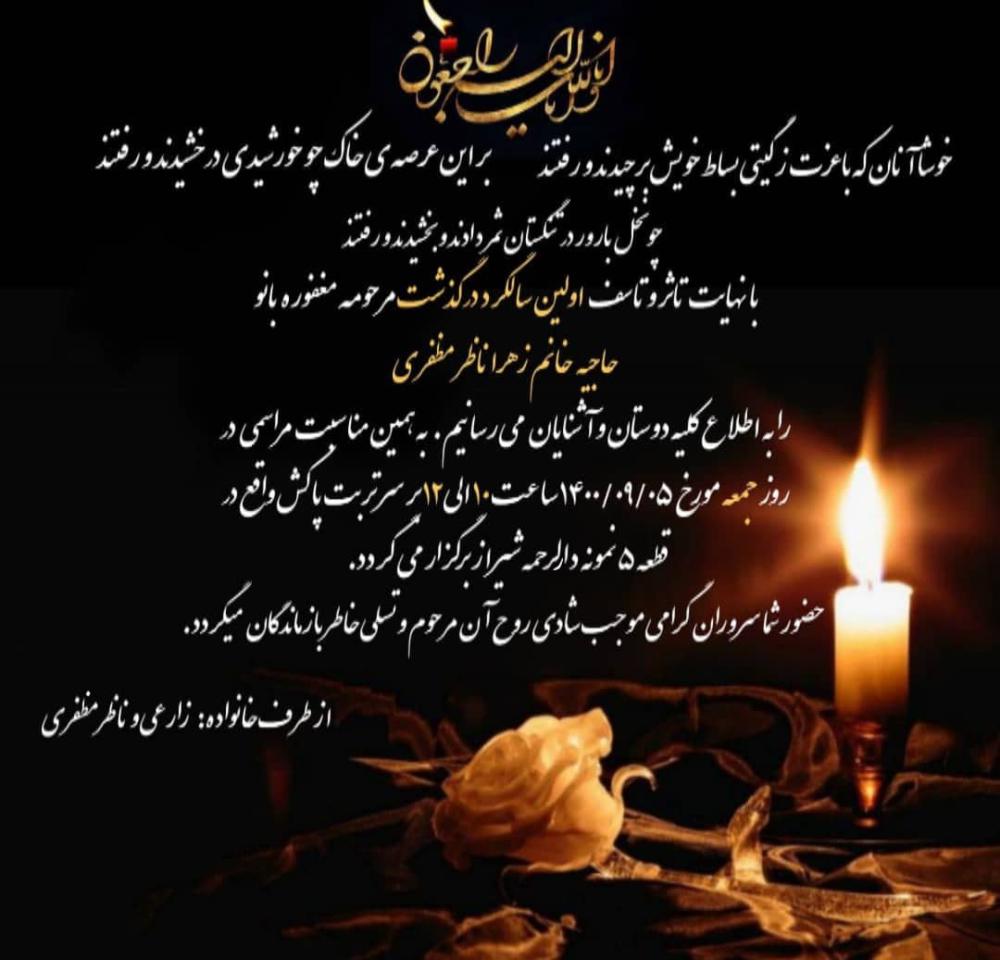 انا لله و انا الیه راجعون
خوشا آنان که با عزت ز گیتی بساط خویش برچیدند و رفتند بر این عرصه ی خاک چو خورشیدی درخشیدند و رفتند
چو نخل بارور در تنگستان ثمر دادند و بخشیدند و رفتند
با نهایت تاثر و تاسف اولین سالگرد درگذشت مرحومه مغفوره بانو
حاجیه خانم زهرا ناظر مظفری
را به اطلاع کلیه دوستان و آشنایان می رسانیم . به همین مناسبت مراسمی در
روز جمعه مورخ ۱۴۰۰/۰۹/۰۵ ساعت ۱۰ الی ۱۲ بر سر تربت پاکش واقع در
قطعه ۵ نمونه دارالرحمه شیراز برگزار می گردد.
حضور شما سروران گرامی موجب شادی روح آن مرحوم و تسلی خاطر بازماندگان میگردد.
از طرف خانواده: زارعی و ناظر مظفری